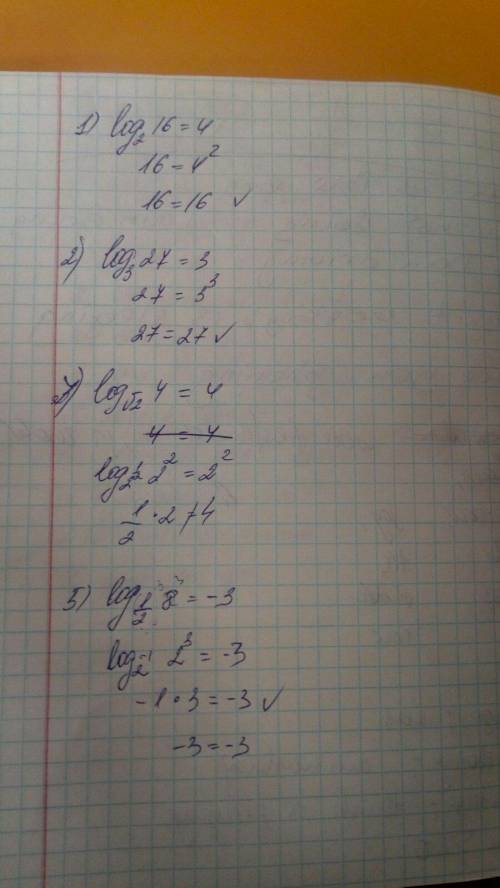 1) log₂ 16 = 4
16 = 4²
16 = 16 ✓
2) log₃ 27 = 3
27 = 3³
27 = 27 ✓
log_√2 4 = 4
4 = 4
log_2^½ 2² = 2²
1/2 · 2 ≠ 4
5) log_1/2 8 = -3
log_2⁻¹ 2³ = -3
-1 · 3 = -3 ✓
-3 = -3